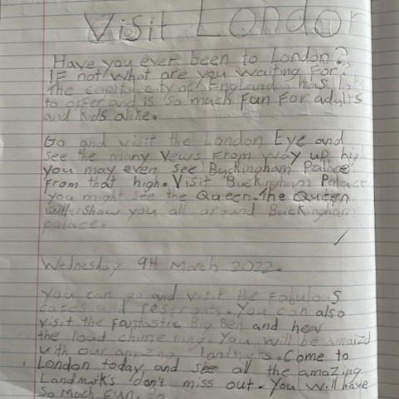 Visit London
Have you ever been to London?
IF not what are you waiting For.
The capital city of England has lots
to offer and is so much Fun For adults
and kids alike.
Go and visit the London Eye and
see the many Vews From way up high
you may even see Buckingham Palace
From that high. Visit Buckingham Palace
you might see the Queen. The Queen
will show you all around Buckingham
palace.
Wednesday 9th March 2022.
You can go and visit the Fabulous
and You can also
visit the Fantastic Big Ben and hear
the loud chime ring. You will be amaizd
with our amazing Come to
London today and see all the amazing
Landmarks don't miss out. You will have
So much Fun.